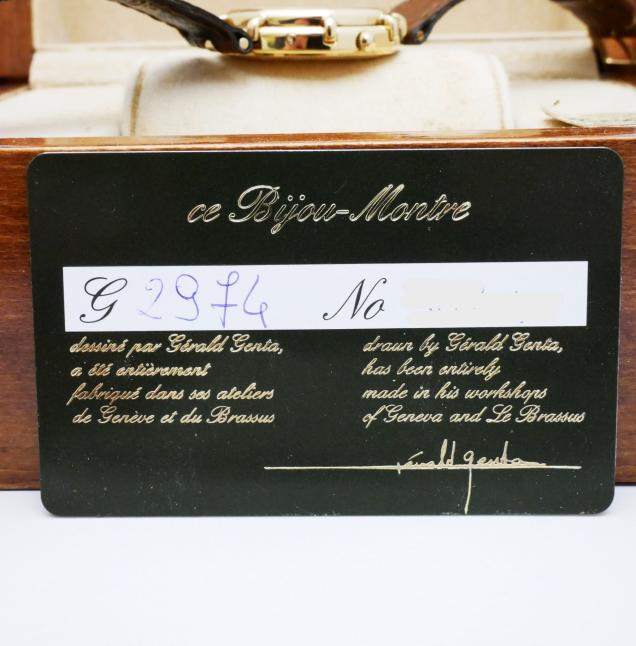 ce Bijou-Montre
G 2974 No
dessiné par Gérald Genta,
a été entièrement
fabriqué dans ses ateliers
de Genève et du Brassus
drawn by Gérald Genta,
has been entirely
made in his workshops
of Geneva and Le Brassus
gérald genta